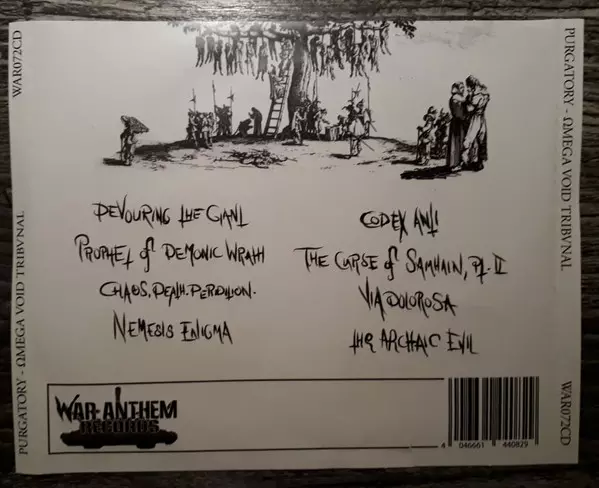 WAR072CD
PURGATORY - ΩMEGA VOID TRIBVNAL
PURGATORY - ΩMEGA VOID TRIBVNAL
WAR072CD
DEVOURING THE GIANT
PROPHET of DEMONIC WRATH
CHAOS.DEATH.PERDITION.
NEMESIS ENIGMA
CODEX ANTI
THE CURSE of SAMHAIN, PT. II
VIA DOLOROSA
THE ARCHAIC EVIL
WAR ANTHEM
RECORDS
4 046661 440829